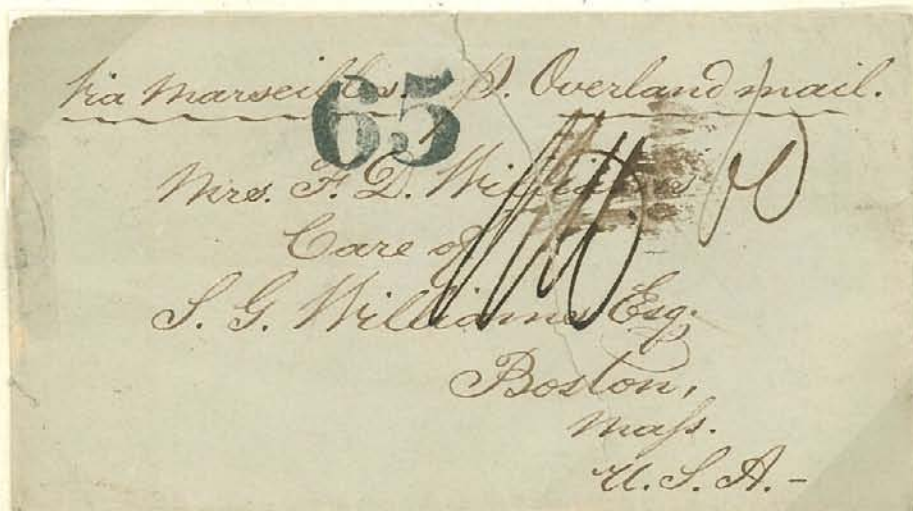 Via Marseilles. p. Overland mail.
65
Mrs. F. D. Williams
Care of
S. G. Williams Esq.
Boston,
Maſs.
U.S.A.-